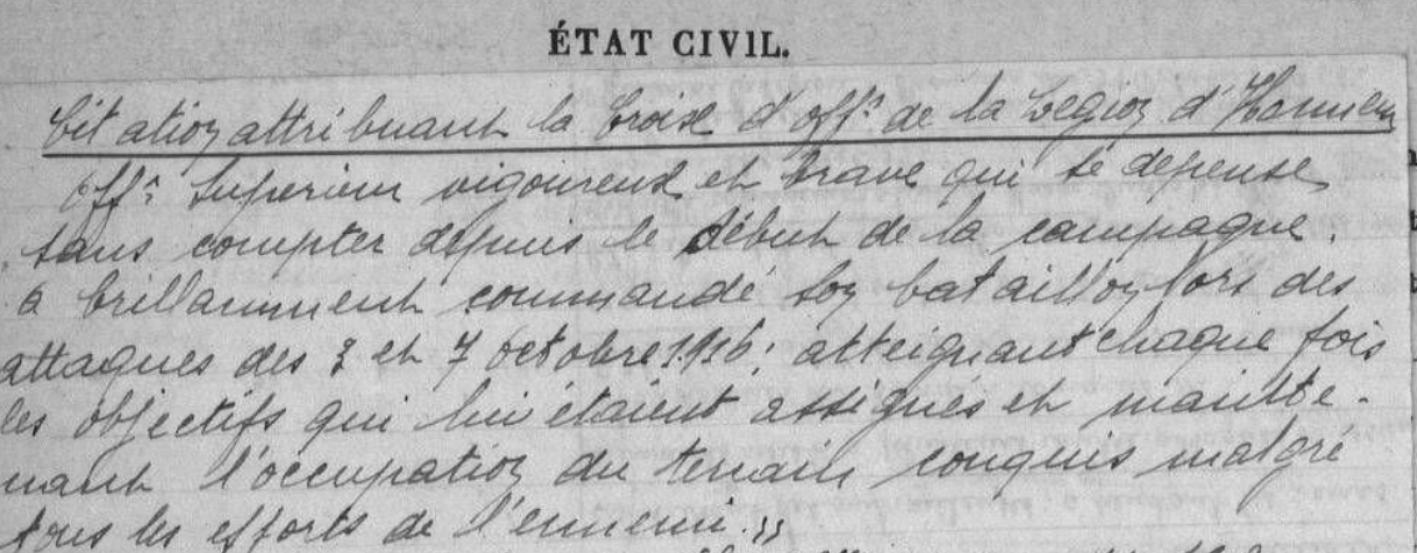 ÉTAT CIVIL.
Citation attribuant la Croix d'offr de la Legion d'Honneur
Offr Superieur vigoureux et brave qui se depense
sans compter depuis le début de la campagne.
a brillamment commandé son bataillon lors des
attaques des 3 et 7 octobre 1916; atteignant chaque fois
les objectifs qui lui étaient assignés et mainte-
nant l'occupation du terrain conquis malgré
tous les efforts de l'ennemi."